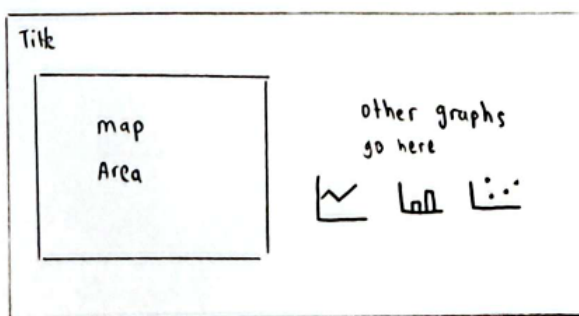 Title
map
Area
other graphs
go here